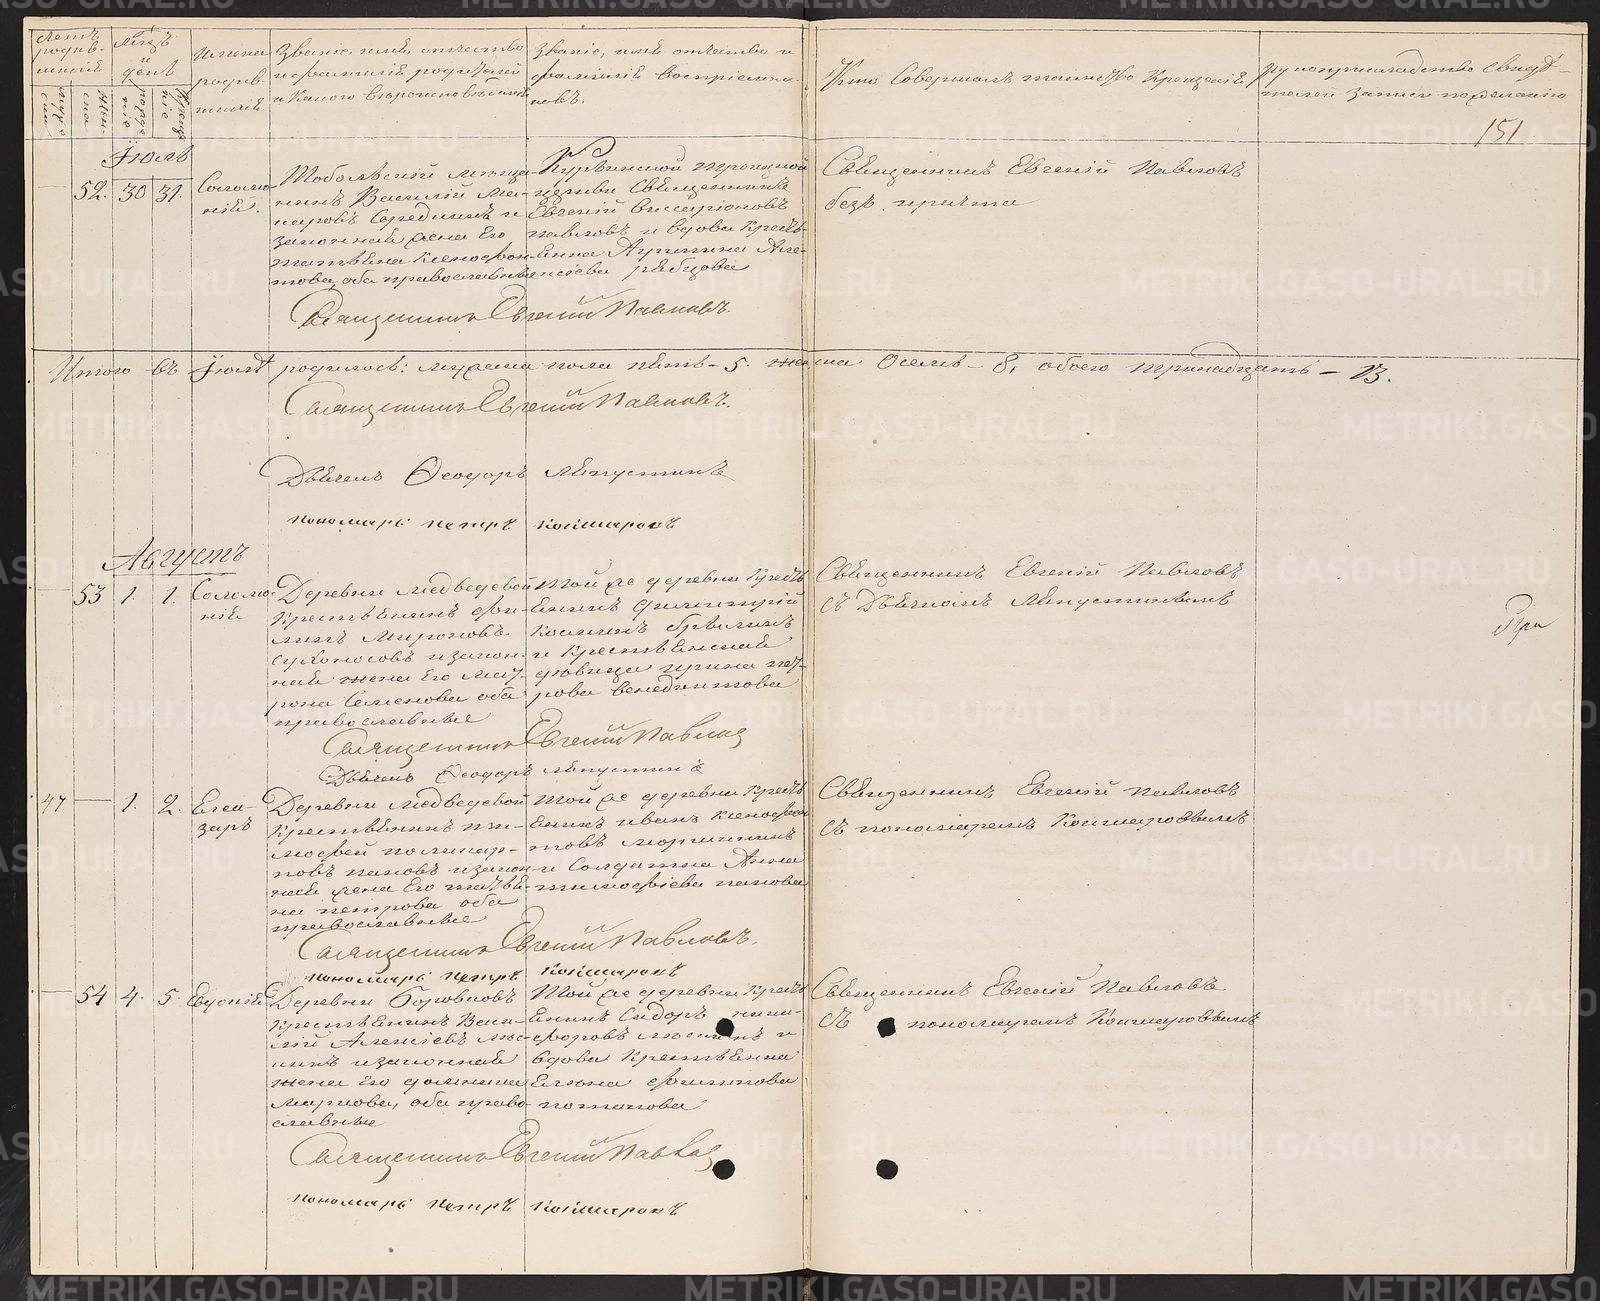 Счетъ родив-шихся
Мѣсяцъ и день
Имена родив-шихся
Званіе, имя, отчество
и фамилія родителей
и какого вѣроисповѣданія
Званіе, имя отчество и
фамилія воспріемни-
ковъ.
Кто совершалъ таинство Крещенія
рукоприкладство свидѣ-
телей записи по желанію
151
Іюль
52. 30 31. Соломо-
нія.
Тобольскій мѣща-
нинъ Василій Ма-
каровъ Середкинъ и
законная жена его
Ксенофон-
това, оба православные
Троицкой
церкви Священникъ
Евгеній Виссаріоновъ
Павловъ и вдова Кресть-
енка Але-
ксіева Рябцова
Священникъ Евгеній Павловъ
безъ причта
Священникъ Евгеній Павловъ.
Итого въ Іюлѣ родилось: мужеска пола пять - 5. женска осемь - 8, обоего тринадцать - 13.
Священникъ Евгеній Павловъ.
Дьячекъ Ѳеодоръ Ляпустинъ
пономарь Петръ Кокшаровъ
Августъ
53 1. 1. Соломо-
нія
Деревни Медведевой
Крестьянинъ Фи-
липъ Мироновъ
Сухоносовъ и закон-
ная жена его Мат-
рона Семенова оба
православные
Той же деревни Кресть-
енинъ Димитрій
Косминъ
и Крестьенская
девица Ирина Пет-
рова Венедиктова
Священникъ Евгеній Павловъ
съ Дьячкомъ Ляпустинымъ
Священникъ Евгеній Павловъ
Дьячекъ Ѳеодоръ Ляпустинъ
47 1. 2. Елеа-
заръ
Деревни Медведевой
Крестьенинъ Ти-
мофей Поликар-
повъ Пановъ и закон-
ная жена его Татья-
на Петрова оба
православные
Той же деревни Кресть-
енинъ Иванъ Ксенофон-
товъ
и Солдатка Анна
Тимофіева Панова
Священникъ Евгеній Павловъ
съ пономаремъ Кокшаровымъ
Священникъ Евгеній Павловъ.
пономарь Петръ Кокшаровъ
54 4. 5. Евдокія
Деревни Боровковъ
Крестьенинъ Васи-
лій Алексіевъ
и законная
жена его Домникіа
Маркова, оба право-
славные
Той же деревни Кресть-
енинъ Сидоръ Ники-
форовъ и
вдова Крестьенка
Елена Филипова
Потапова
Священникъ Евгеній Павловъ
съ пономаремъ Кокшаровымъ
Священникъ Евгеній Павловъ
пономарь Петръ Кокшаровъ
METRIKI.GASO-URAL.RU